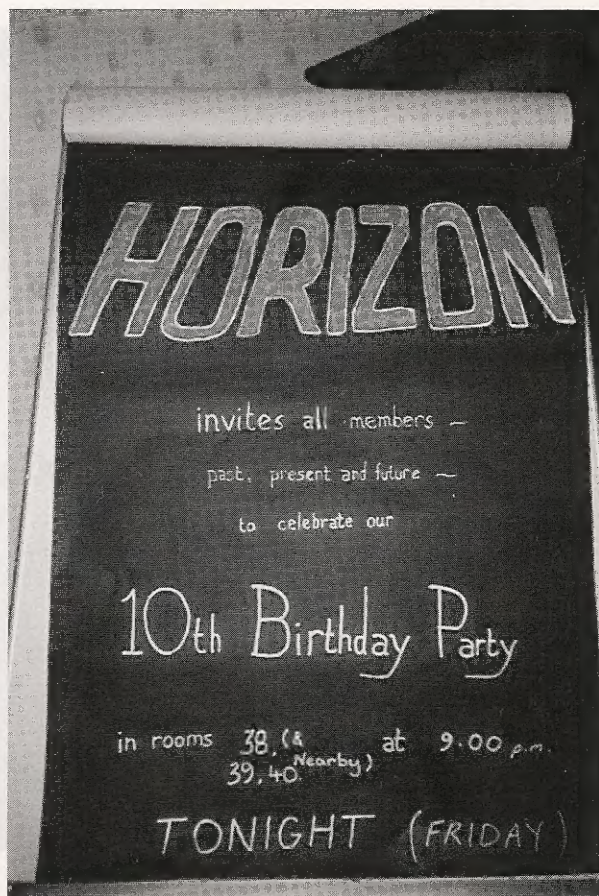 HORIZON
invites all members –
past, present and future –
to celebrate our
10th Birthday Party
in rooms 38, (& at 9.00 p.m.
39, 40 Nearby)
TONIGHT (FRIDAY)